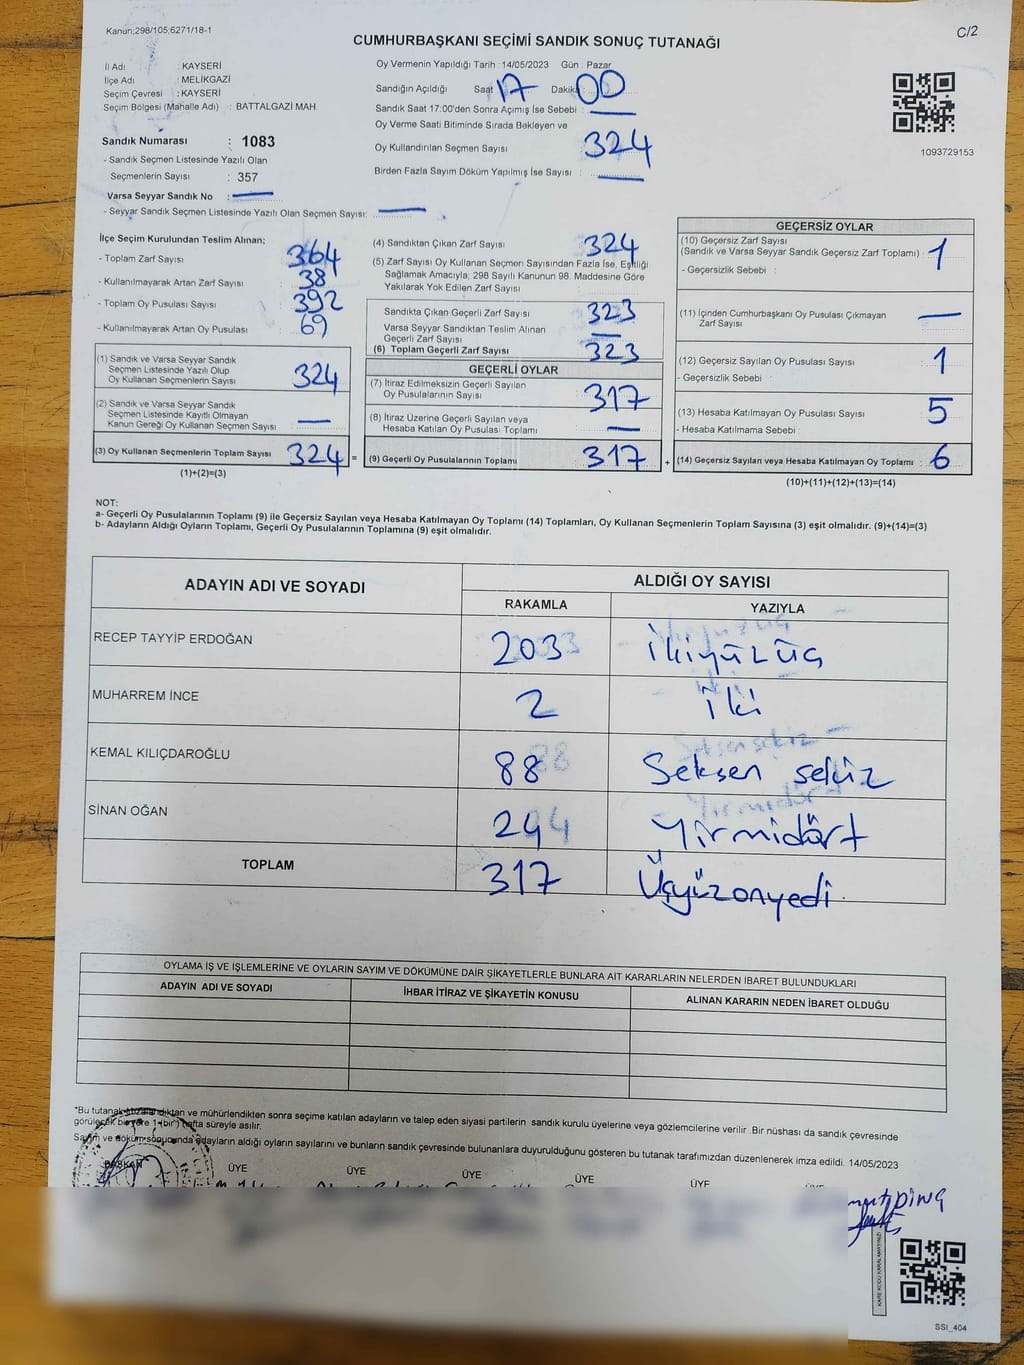 Kanun;298/105;6271/18-1
C/2
CUMHURBAŞKANI SEÇİMİ SANDIK SONUÇ TUTANAĞI
İl Adı : KAYSERİ
İlçe Adı : MELİKGAZİ
Seçim Çevresi : KAYSERİ
Seçim Bölgesi (Mahalle Adı) : BATTALGAZİ MAH.
Sandık Numarası : 1083
- Sandık Seçmen Listesinde Yazılı Olan
Seçmenlerin Sayısı : 357
Varsa Seyyar Sandık No : —
- Seyyar Sandık Seçmen Listesinde Yazılı Olan Seçmen Sayısı: —
Oy Vermenin Yapıldığı Tarih : 14/05/2023 Gün : Pazar
Sandığın Açıldığı Saat 17 Dakika 00
Sandık Saat 17:00'den Sonra Açımış İse Sebebi : —
Oy Verme Saati Bitiminde Sırada Bekleyen ve
Oy Kullandırılan Seçmen Sayısı : 324
Birden Fazla Sayım Döküm Yapılmış İse Sayısı : —
1093729153
İlçe Seçim Kurulundan Teslim Alınan;
- Toplam Zarf Sayısı : 364
- Kullanılmayarak Artan Zarf Sayısı : 38
- Toplam Oy Pusulası Sayısı : 392
- Kullanılmayarak Artan Oy Pusulası : 69
(1) Sandık ve Varsa Seyyar Sandık
Seçmen Listesinde Yazılı Olup
Oy Kullanan Seçmenlerin Sayısı : 324
(2) Sandık ve Varsa Seyyar Sandık
Seçmen Listesinde Kayıtlı Olmayan
Kanun Gereği Oy Kullanan Seçmen Sayısı : —
(3) Oy Kullanan Seçmenlerin Toplam Sayısı : 324 =
(1)+(2)=(3)
(4) Sandıktan Çıkan Zarf Sayısı : 324
(5) Zarf Sayısı Oy Kullanan Seçmen Sayısından Fazla İse, Eşitliği
Sağlamak Amacıyla; 298 Sayılı Kanunun 98. Maddesine Göre
Yakılarak Yok Edilen Zarf Sayısı :
Sandıkta Çıkan Geçerli Zarf Sayısı : 323
Varsa Seyyar Sandıktan Teslim Alınan
Geçerli Zarf Sayısı : —
(6) Toplam Geçerli Zarf Sayısı : 323
GEÇERLİ OYLAR
(7) İtiraz Edilmeksizin Geçerli Sayılan
Oy Pusulalarının Sayısı : 317
(8) İtiraz Üzerine Geçerli Sayılan veya
Hesaba Katılan Oy Pusulası Toplamı : —
(9) Geçerli Oy Pusulalarının Toplamı : 317 +
GEÇERSİZ OYLAR
(10) Geçersiz Zarf Sayısı
(Sandık ve Varsa Seyyar Sandık Geçersiz Zarf Toplamı) : 1
- Geçersizlik Sebebi :
(11) İçinden Cumhurbaşkanı Oy Pusulası Çıkmayan
Zarf Sayısı : —
(12) Geçersiz Sayılan Oy Pusulası Sayısı : 1
- Geçersizlik Sebebi :
(13) Hesaba Katılmayan Oy Pusulası Sayısı : 5
- Hesaba Katılmama Sebebi :
(14) Geçersiz Sayılan veya Hesaba Katılmayan Oy Toplamı : 6
(10)+(11)+(12)+(13)=(14)
NOT:
a- Geçerli Oy Pusulalarının Toplamı (9) ile Geçersiz Sayılan veya Hesaba Katılmayan Oy Toplamı (14) Toplamları, Oy Kullanan Seçmenlerin Toplam Sayısına (3) eşit olmalıdır. (9)+(14)=(3)
b- Adayların Aldığı Oyların Toplamı, Geçerli Oy Pusulalarının Toplamına (9) eşit olmalıdır.
ADAYIN ADI VE SOYADI ALDIĞI OY SAYISI
RAKAMLA YAZIYLA
RECEP TAYYİP ERDOĞAN 203 İkiyüzüç
MUHARREM İNCE 2 İki
KEMAL KILIÇDAROĞLU 88 Seksen sekiz
SİNAN OĞAN 24 Yirmidört
TOPLAM 317 Üçyüzonyedi
OYLAMA İŞ VE İŞLEMLERİNE VE OYLARIN SAYIM VE DÖKÜMÜNE DAİR ŞİKAYETLERLE BUNLARA AİT KARARLARIN NELERDEN İBARET BULUNDUKLARI
ADAYIN ADI VE SOYADI İHBAR İTİRAZ VE ŞİKAYETİN KONUSU ALINAN KARARIN NEDEN İBARET OLDUĞU
*Bu tutanak imzalandıktan ve mühürlendikten sonra seçime katılan adayların ve talep eden siyasi partilerin sandık kurulu üyelerine veya gözlemcilerine verilir. Bir nüshası da sandık çevresinde
görülecek bir yere 1 (bir) hafta süreyle asılır.
Sayım ve döküm sonucunda adayların aldığı oyların sayılarını ve bunların sandık çevresinde bulunanlara duyurulduğunu gösteren bu tutanak tarafımızdan düzenlenerek imza edildi. 14/05/2023
BAŞKAN ÜYE ÜYE ÜYE ÜYE ÜYE
KARE KODU KARALAMAYINIZ!
SSİ_404